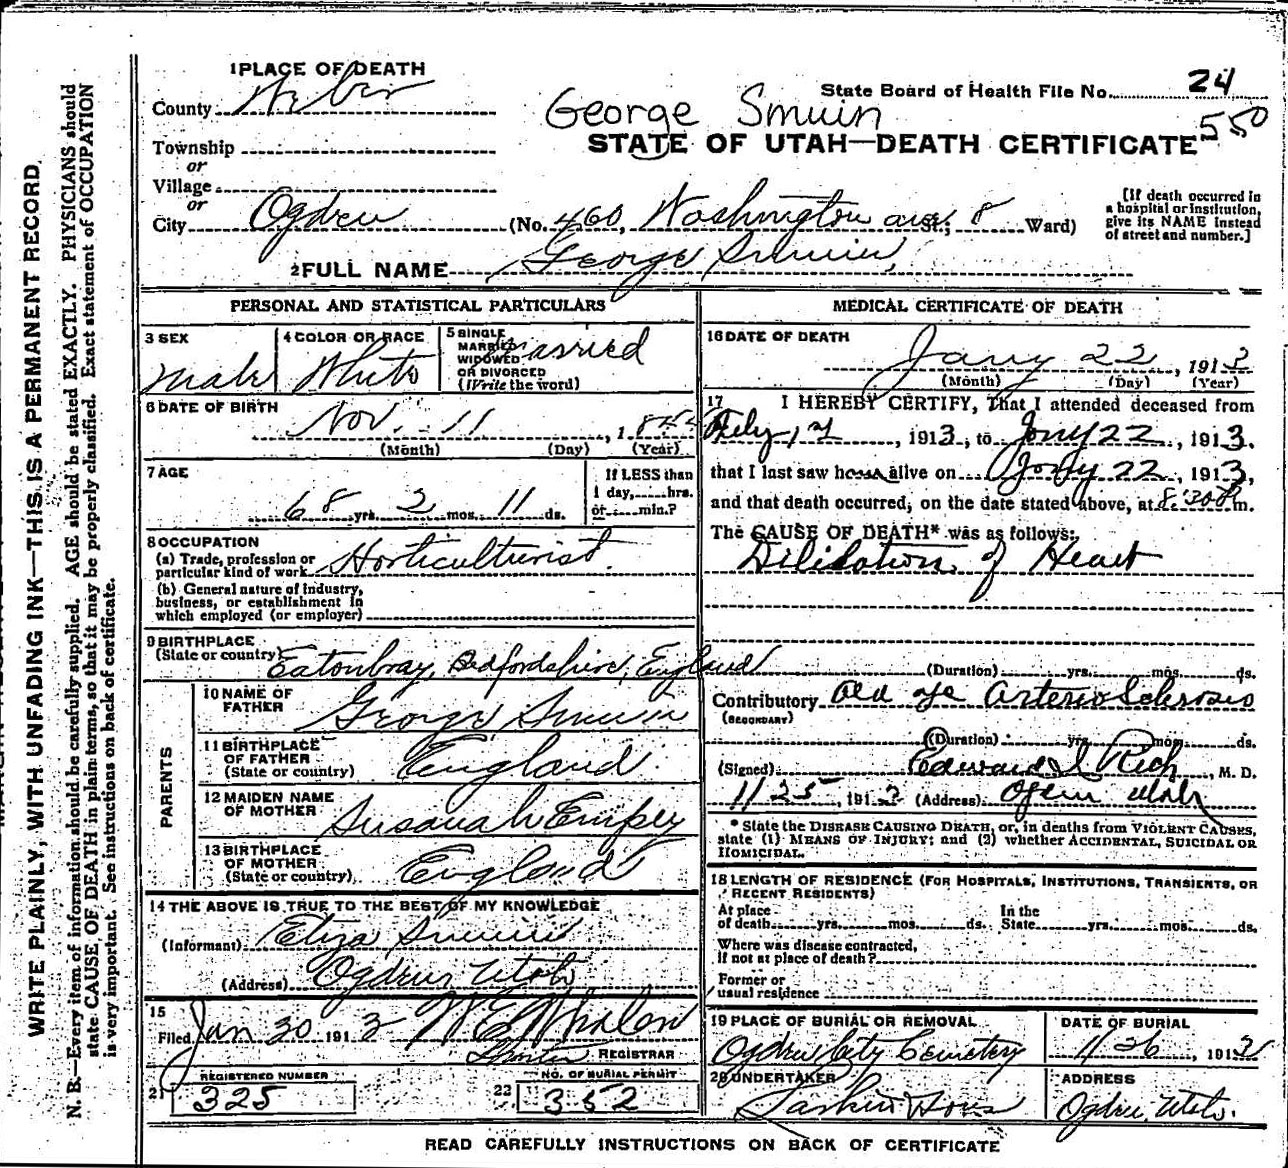 1 PLACE OF DEATH
County Weber
State Board of Health File No. 24
550
George Smuin
STATE OF UTAH—DEATH CERTIFICATE
Township
or
Village
or
City Ogden (No. 460, Washington ave St.; 8 Ward)
[If death occurred in a hospital or institution, give its NAME instead of street and number.]
2 FULL NAME George Smuin,
PERSONAL AND STATISTICAL PARTICULARS
3 SEX
Male
4 COLOR OR RACE
White
5 SINGLE
MARRIED
WIDOWED
OR DIVORCED
(Write the word)
Married
6 DATE OF BIRTH
Nov. 11, 1844
(Month) (Day) (Year)
7 AGE
68 yrs. 2 mos. 11 ds.
If LESS than
1 day, hrs.
or min.?
8 OCCUPATION
(a) Trade, profession or
particular kind of work Horticulturist.
(b) General nature of Industry,
business, or establishment in
which employed (or employer)
9 BIRTHPLACE
(State or country) Eatonbray, Bedfordshire, England
PARENTS
10 NAME OF
FATHER George Smuin
11 BIRTHPLACE
OF FATHER
(State or country) England.
12 MAIDEN NAME
OF MOTHER Susanah Empey
13 BIRTHPLACE
OF MOTHER
(State or country) England
14 THE ABOVE IS TRUE TO THE BEST OF MY KNOWLEDGE
(Informant) Eliza Smuin
(Address) Ogden, Utah
15
Filed Jan 30 1913 W E Whalen
REGISTRAR
REGISTERED NUMBER
21 325
NO. OF BURIAL PERMIT
22 352
MEDICAL CERTIFICATE OF DEATH
16 DATE OF DEATH
Jany 22, 1913
(Month) (Day) (Year)
17 I HEREBY CERTIFY, That I attended deceased from
, 1913, to Jany 22, 1913.
that I last saw h alive on Jany 22, 1913,
and that death occurred, on the date stated above, at 8:30 P m.
The CAUSE OF DEATH* was as follows:
Dilitation of Heart
(Duration) yrs. mos. ds.
Contributory Old age Arterio Sclerosis
(SECONDARY)
(Duration) yrs. mos. ds.
(Signed) Edward I Rich, M. D.
1/25, 1913 (Address) Ogden Utah
* State the DISEASE CAUSING DEATH, or, in deaths from VIOLENT CAUSES,
state (1) MEANS OF INJURY; and (2) whether ACCIDENTAL, SUICIDAL OR
HOMICIDAL.
18 LENGTH OF RESIDENCE (FOR HOSPITALS, INSTITUTIONS, TRANSIENTS, OR
RECENT RESIDENTS)
At place
of death yrs. mos. ds.
In the
State yrs. mos. ds.
Where was disease contracted,
if not at place of death?
Former or
usual residence
19 PLACE OF BURIAL OR REMOVAL
Ogden City Cemetery
DATE OF BURIAL
1/26, 1913
20 UNDERTAKER
Larkin Sons
ADDRESS
Ogden, Utah.
READ CAREFULLY INSTRUCTIONS ON BACK OF CERTIFICATE
WRITE PLAINLY, WITH UNFADING INK—THIS IS A PERMANENT RECORD.
N. B.—Every item of information should be carefully supplied. AGE should be stated EXACTLY. PHYSICIANS should
state CAUSE OF DEATH in plain terms, so that it may be properly classified. Exact statement of OCCUPATION
is very important. See instructions on back of certificate.